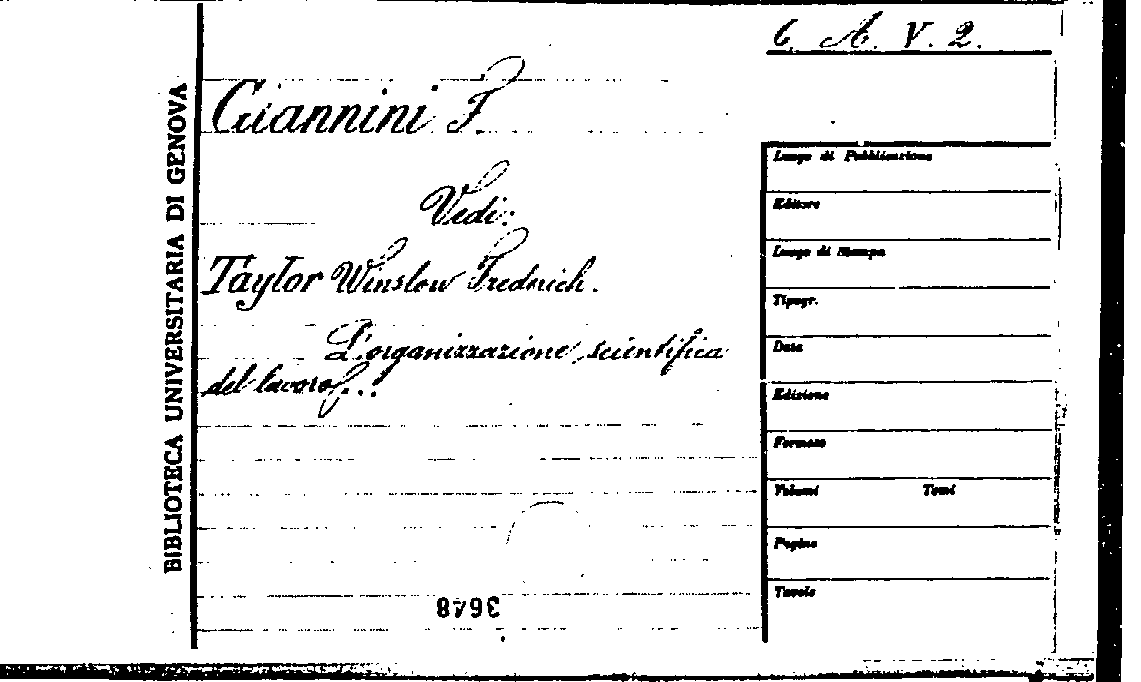 6. A. V. 2.
BIBLIOTECA UNIVERSITARIA DI GENOVA
Giannini F
Vedi:
Taylor Winslow Fredrich.
L'organizzazione scientifica
del lavoro...
Luogo di Pubblicazione
Editore
Luogo di Stampa
Tipogr.
Data
Edizione
Formato
Volumi Tomi
Pagine
Tavole
3648